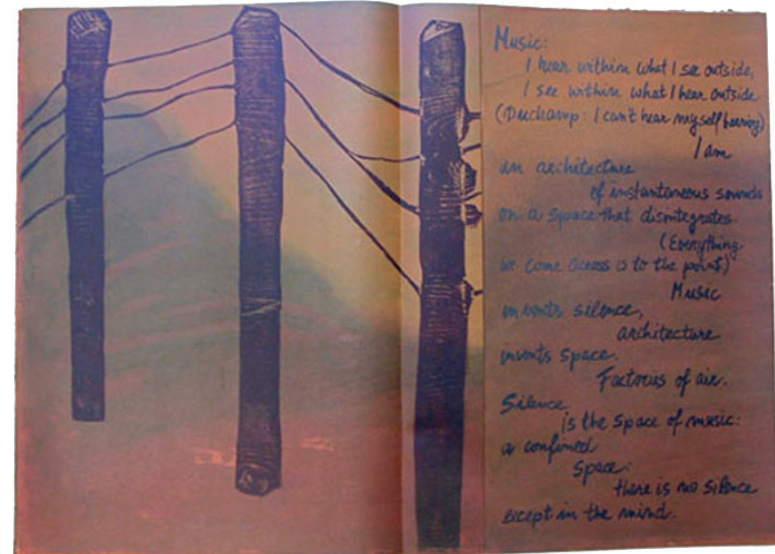 Music:
I hear within what I see outside,
I see within what I hear outside
(Duchamp: I can't hear myself hearing)
I am
an architecture
of instantaneous sounds
on a space that disintegrates.
(Everything
we come across is to the point)
Music
invents silence,
architecture
invents space.
Factories of air.
Silence
is the space of music:
a confined
space:
there is no silence
except in the mind.